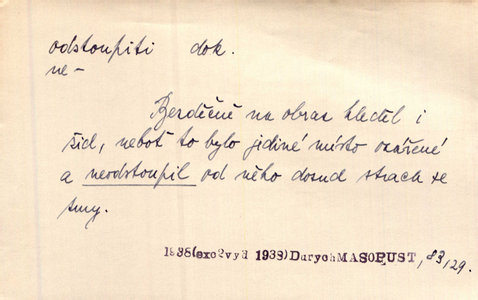 odstoupiti dok.
ne-
Bezděčně na obraz hleděl i
žid, neboť to bylo jediné místo ozářené
a neodstoupil od něho dosud strach ze
tmy.
1938(exc2vyd 1938)DurychMASOPUST, 83, 29.